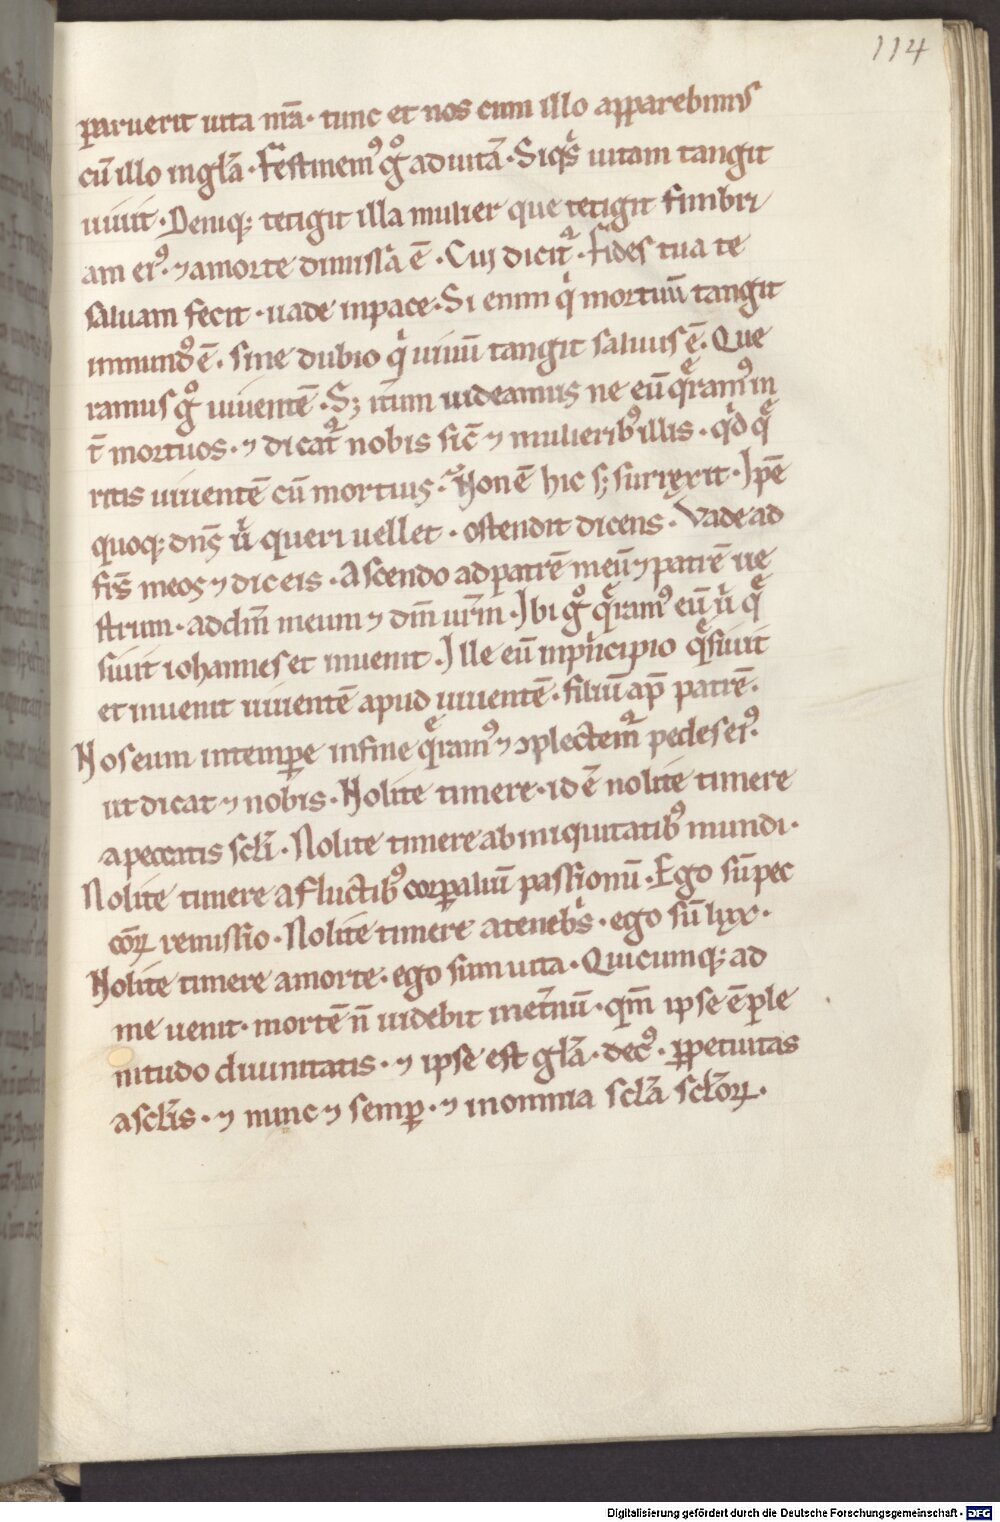 114
paruerit uita nr̄a· tunc et nos cum illo apparebimus
cū illo in gl̄a· Festinem᷒ gͦ ad uitā· Siqͥs uitam tangit
uiuit· Deniq; tetigit illa mulier que tetigit fimbri
am ei᷒· ⁊ a morte dimissa ē· Cui dicit᷑· Fides tua te
saluam fecit· uade in pace· Si enim qͥ mortuū tangit
inmund᷒ ē· sine dubio qͥ uiuū tangit saluus ē· Que
ramus gͦ uiuentē· S; itum uideamus ne eū q̄ram᷒ in
t̄ mortuos· ⁊ dicat᷑ nobis sic̄ ⁊ mulierib᷒ illis· qͥd q̄
ritis uiuentē cū mortuis· Non ē hic s; surrexit· Ipē
quoq; dn̄s uͥ queri uellet· ostendit dicens· Vade ad
fr̄s meos ⁊ dic eis· Ascendo ad patrē meū ⁊ patrē ue
strum· ad dm̄ meum ⁊ dm̄ ur̄m· Ibi gͦ q̄ram᷒ eū uͥ q̄
siuit iohannes et inuenit· Ille eū in pͥncipio q̄siuit
et inuenit uiuentē apud uiuentē· filiū ap̄ patrē·
Nos eum in tempore in fine q̄ram᷒ ⁊ ꝯplectem᷑ pedes ei᷒·
ut dicat ⁊ nobis· Nolite timere· id ē nolite timere
a peccatis scl̄i· Nolite timere ab iniquitatib᷒ mundi·
Nolite timere a fluctib᷒ corꝑaliū passionū· Ego sū pec
cōꝝ remissio· Nolite timere a tenebͥs· ego sū lux·
Nolite timere a morte· ego sum uita· Quicumq; ad
me uenit· mortē n̄ uidebit in et̄nū· qm̄ ipse ē ple
nitudo diuinitatis· ⁊ ipse est gl̄a· dec᷒· ꝑpetuitas
a scl̄is· ⁊ nunc ⁊ semꝑ· ⁊ in omnia scl̄a scl̄oꝝ·
Digitalisierung gefördert durch die Deutsche Forschungsgemeinschaft - DFG